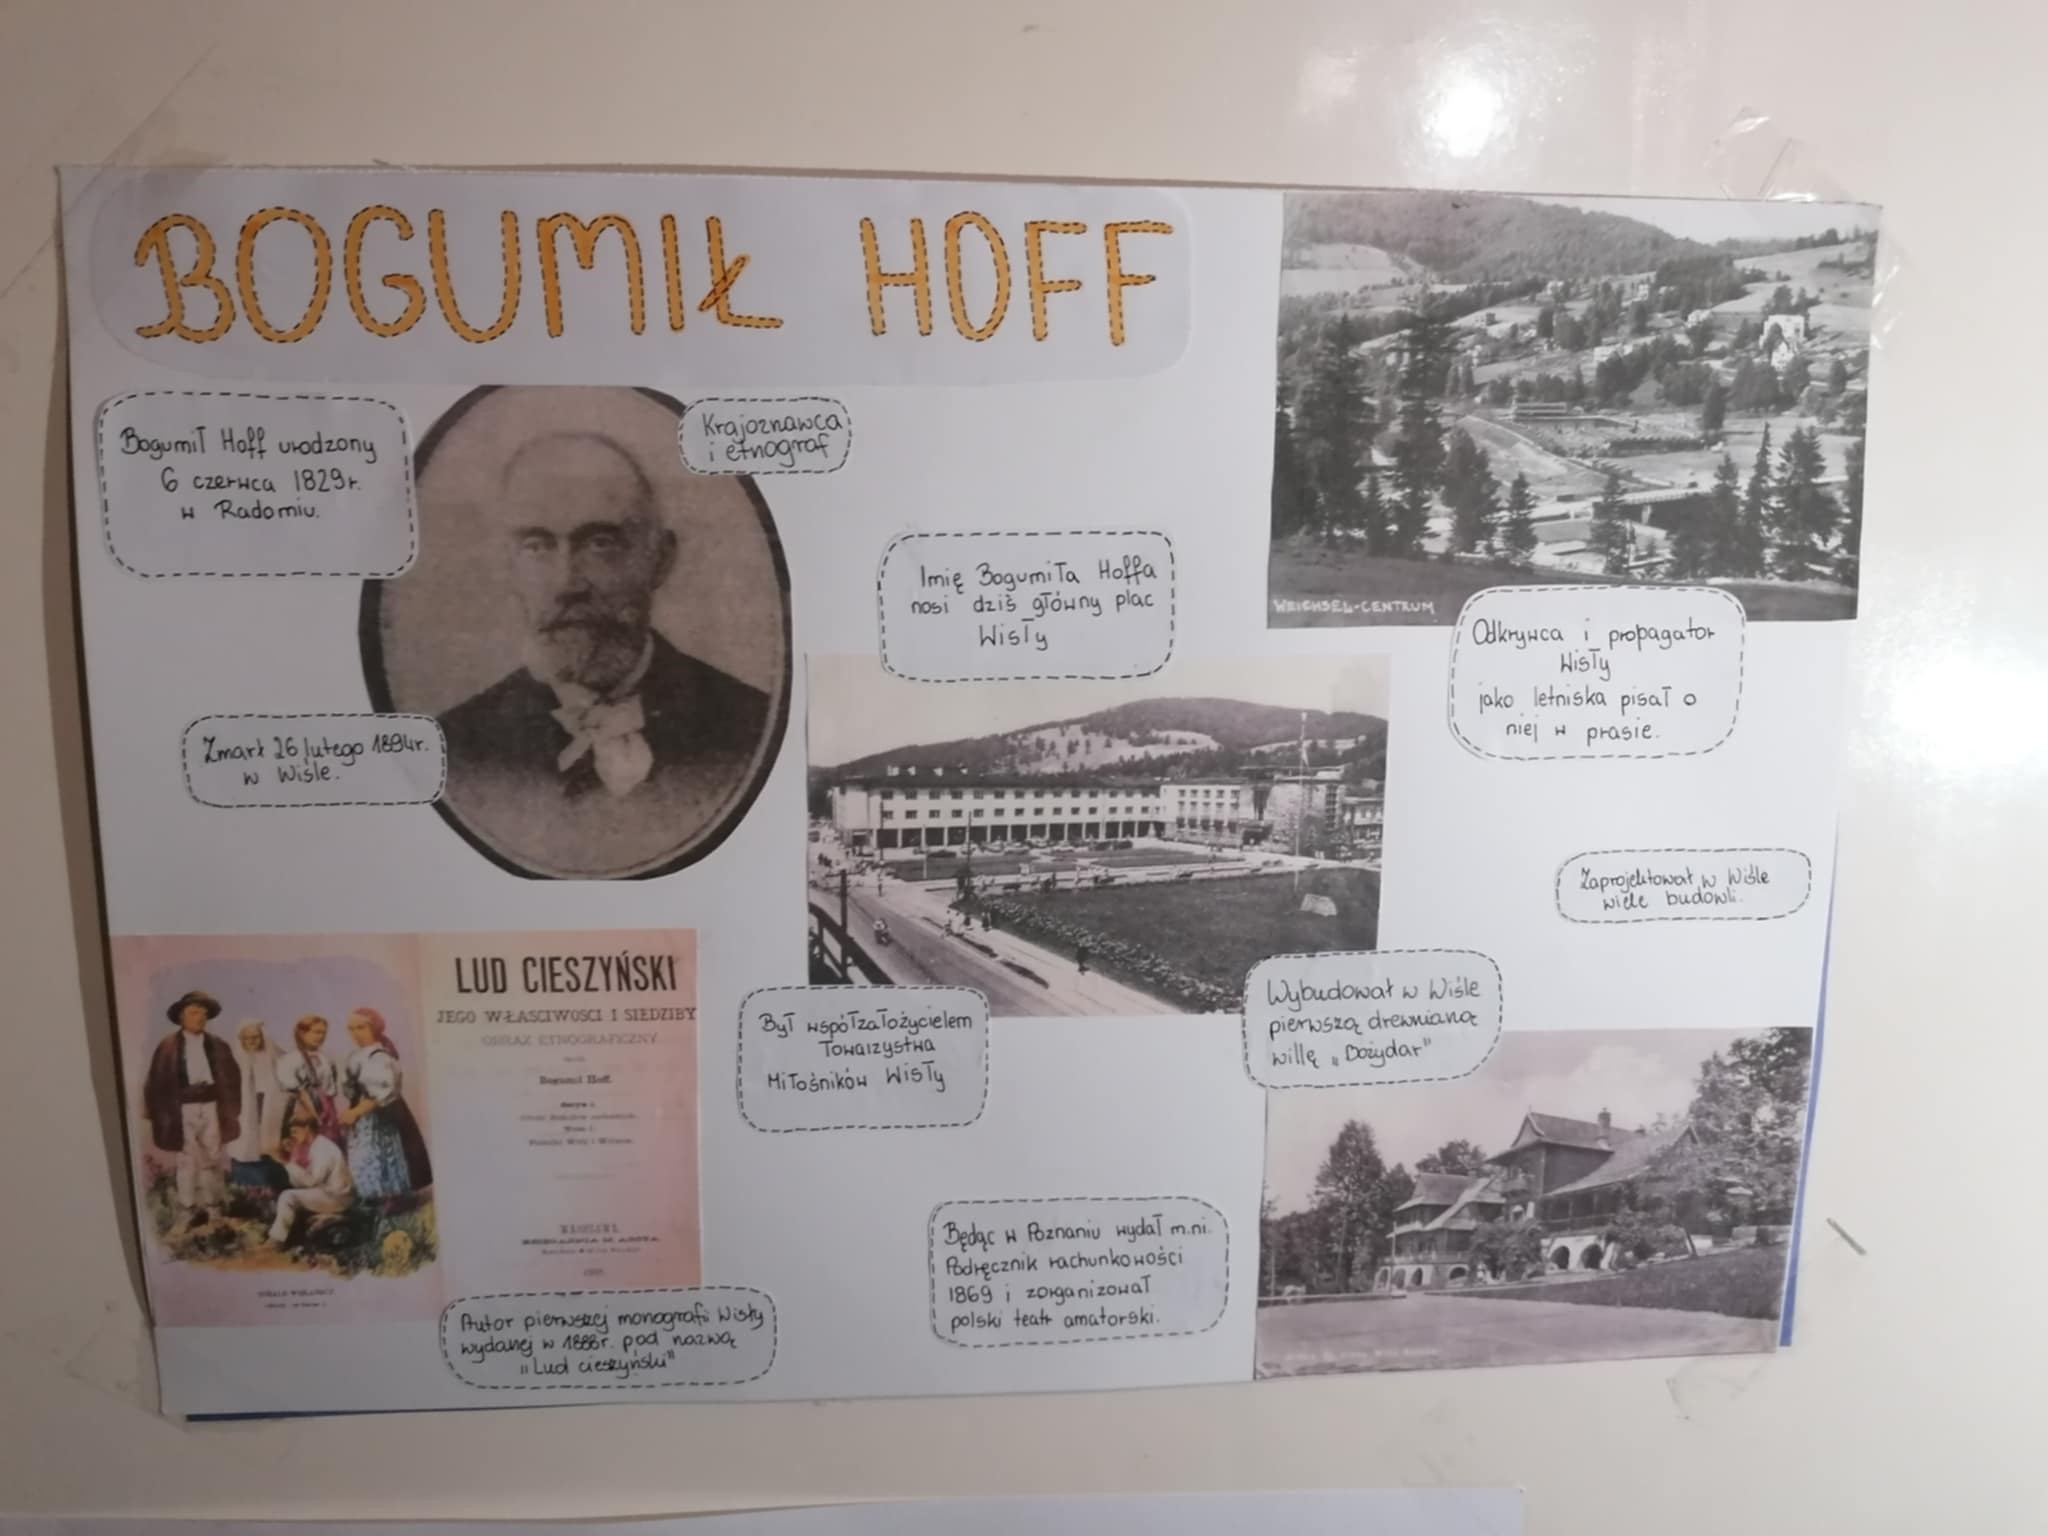 BOGUMIŁ HOFF
Bogumił Hoff urodzony
6 czerwca 1829r.
w Radomiu.
Krajoznawca
i etnograf
Imię Bogumiła Hoffa
nosi dziś główny plac
Wisły
WEICHSEL-CENTRUM
Odkrywca i propagator
Wisły
jako letniska pisał o
niej w prasie.
Zmarł 26 lutego 1894r.
w Wiśle.
Zaprojektował w Wiśle
wiele budowli.
LUD CIESZYŃSKI
JEGO WŁAŚCIWOŚCI I SIEDZIBY
OBRAZ ETNOGRAFICZNY
Bogumił Hoff.
Serya I.
Tom I.
Początki Wisły i Wiślanie.
WARSZAWA.
KSIĘGARNIA M. ARCTA.
Był współzałożycielem
Towarzystwa
Miłośników Wisły
Wybudował w Wiśle
pierwszą drewnianą
willę „Bożydar"
Będąc w Poznaniu wydał m.ni.
Podręcznik rachunkowości
1869 i zorganizował
polski teatr amatorski.
Autor pierwszej monografii Wisły
wydanej w 1888r. pod nazwą
„Lud cieszyński"